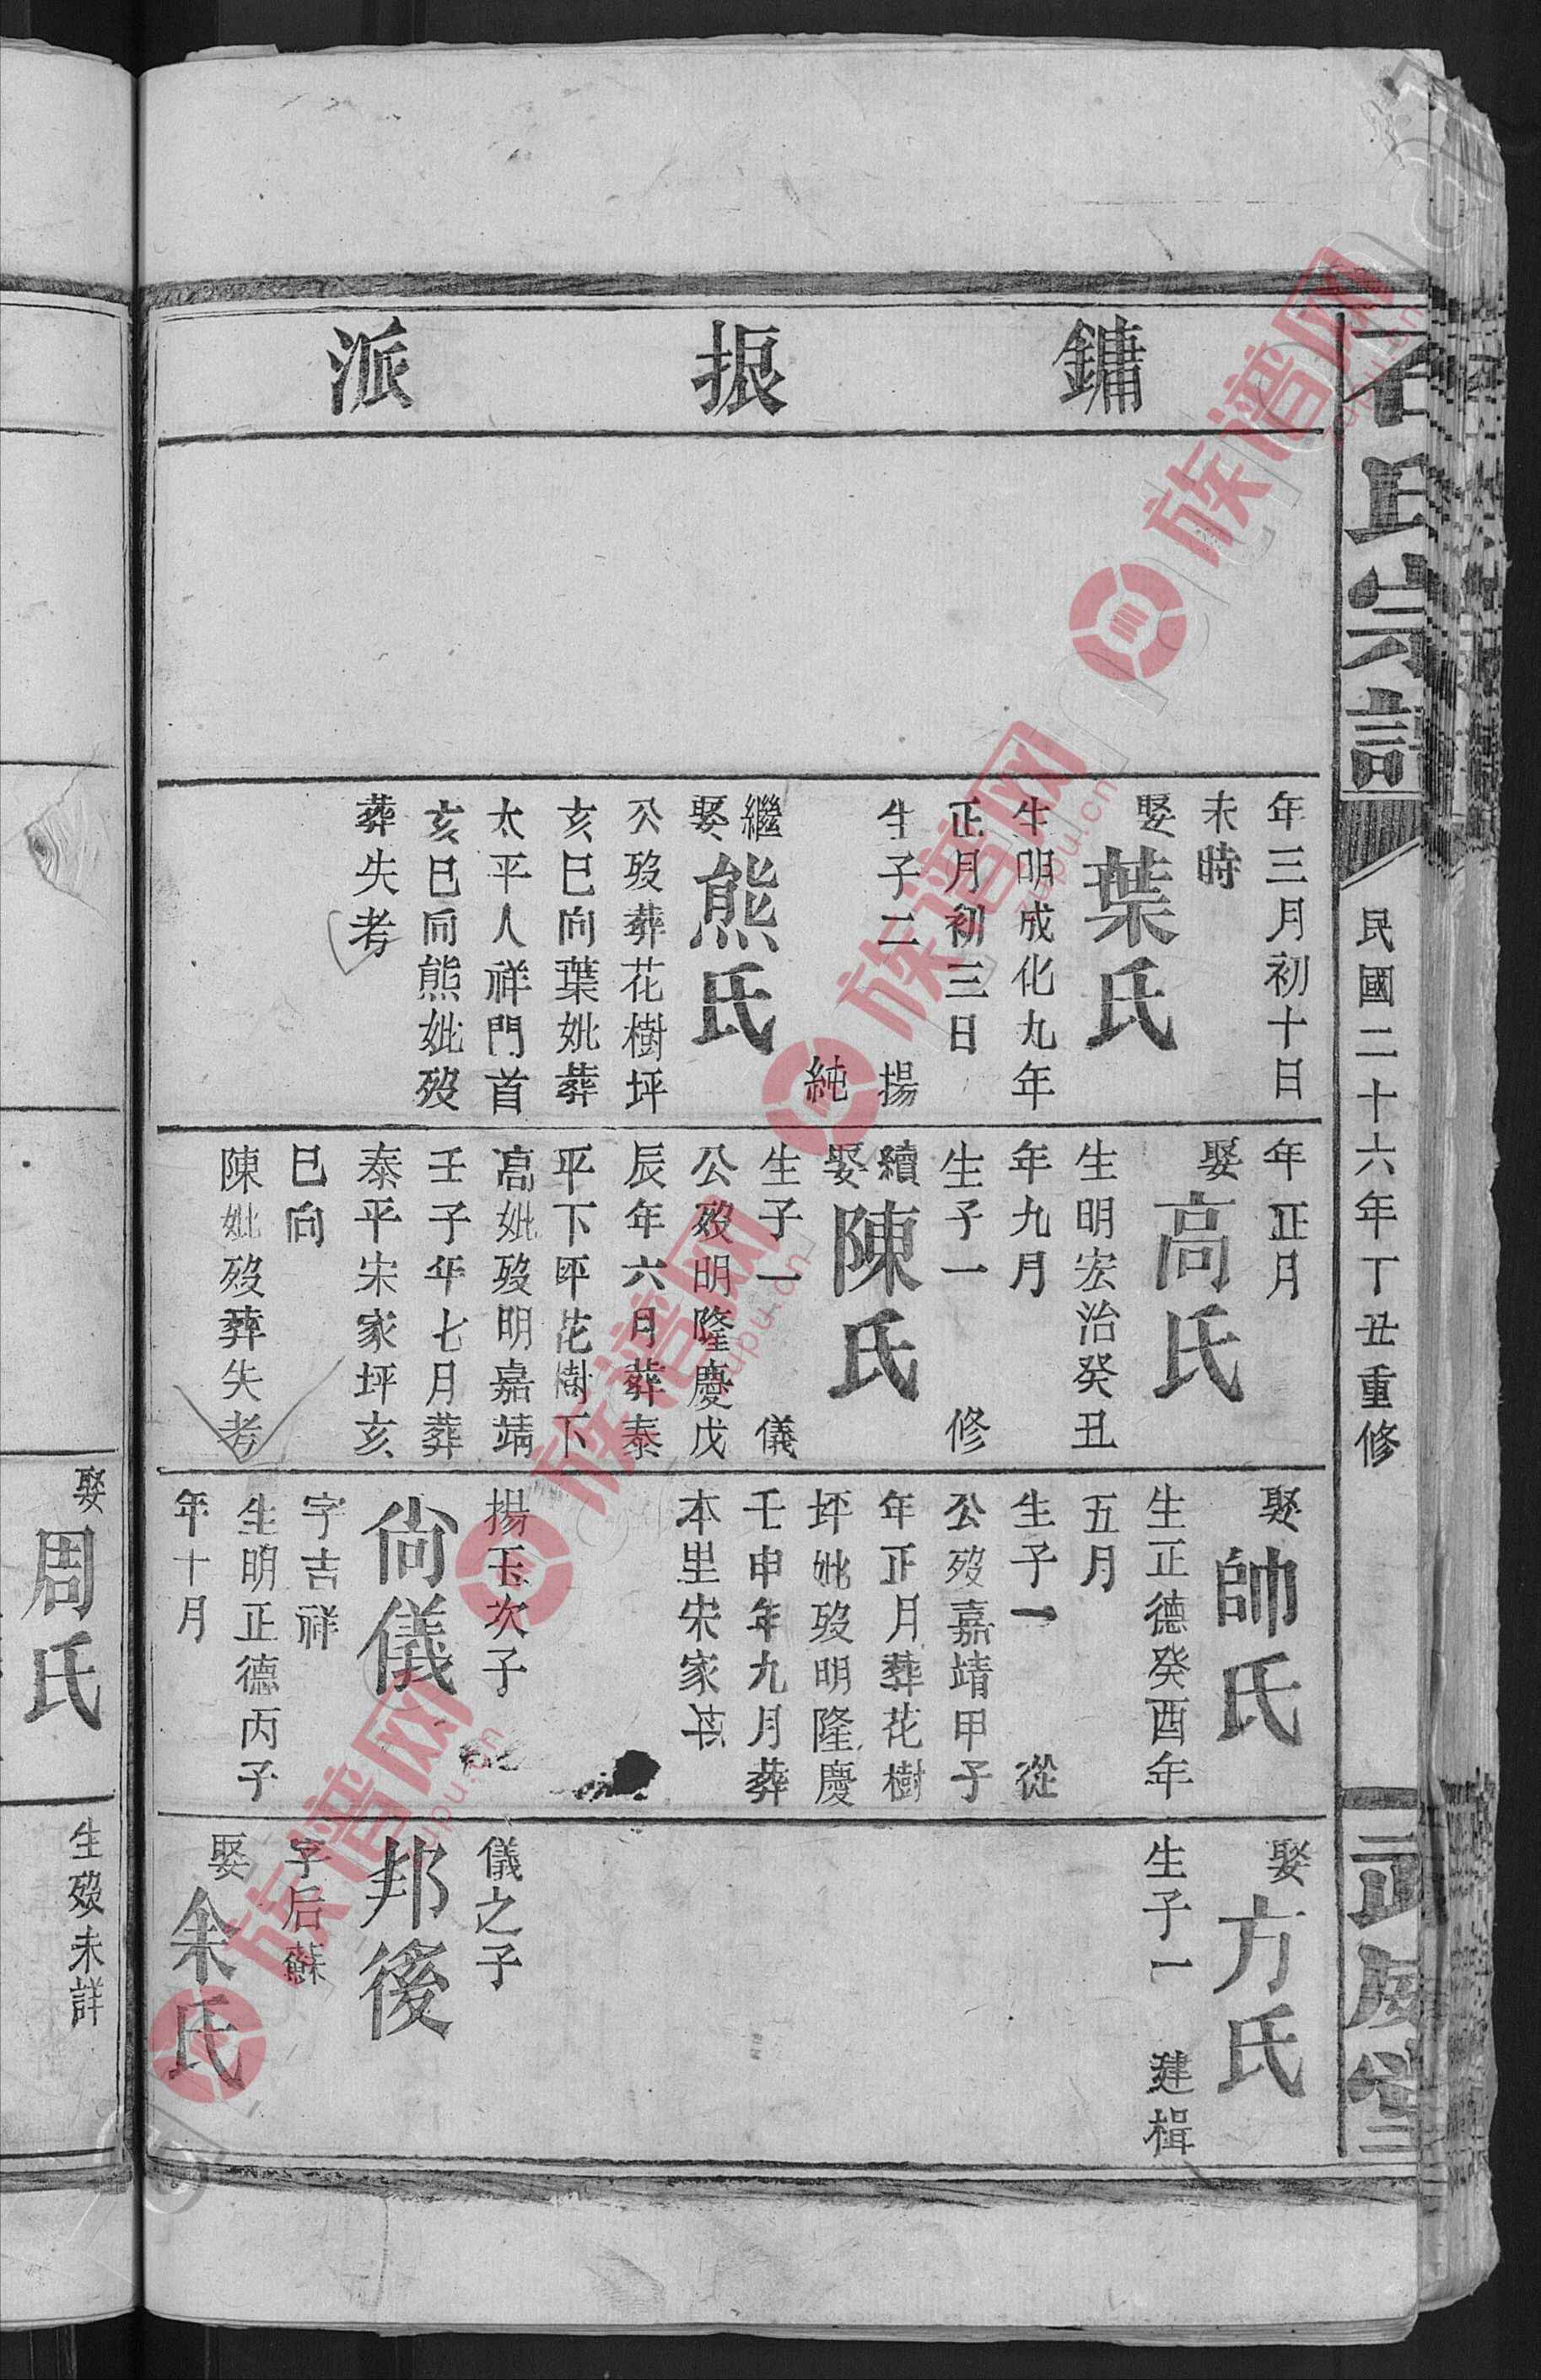 石氏宗譜
民國二十六年丁丑重修
武威堂
鏞
振
派
年三月初十日
未時
娶葉氏
生明成化九年
正月初三日
生子二 揚
純
繼娶熊氏
公歿葬花樹坪
亥巳向葉妣葬
太平人祥門首
亥巳向熊妣歿
葬失考
年正月
娶高氏
生明宏治癸丑
年九月
生子一 修
續娶陳氏
生子一 儀
公歿明隆慶戊
辰年六月葬泰
平下坪花樹下
高妣歿明嘉靖
壬子年七月葬
泰平宋家坪亥
巳向
陳妣歿葬失考
娶帥氏
生正德癸酉年
五月
生子一 從
公歿嘉靖甲子
年正月葬花樹
坪妣歿明隆慶
壬申年九月葬
本里宋家
揚玉次子
尙儀
字吉祥
生明正德丙子
年十月
娶方氏
生子一 建楫
儀之子
邦後
字后蘇
娶余氏
娶周氏
生歿未詳